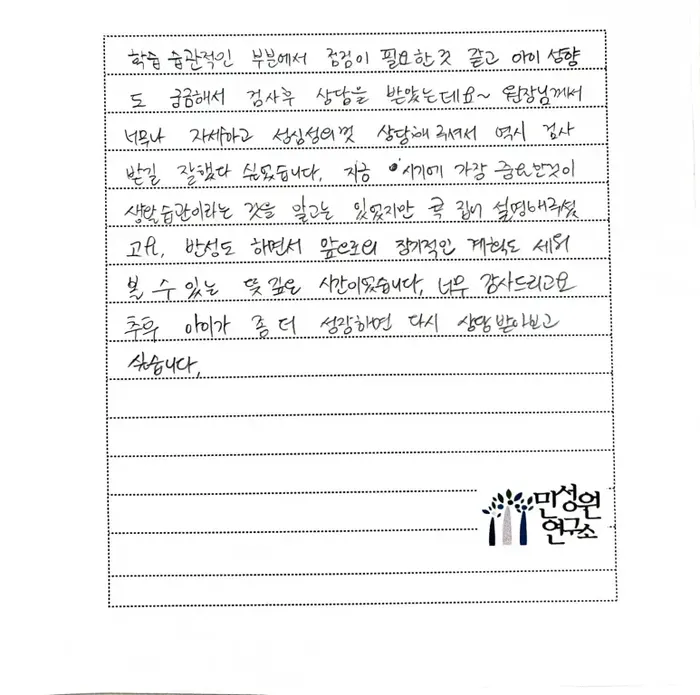 학습 습관적인 부분에서 점검이 필요한것 같고 아이 성향
도 궁금해서 검사후 상담을 받았는데요~ 원장님께서
너무나 자세하고 성심성의껏 상담해 주셔서 역시 검사
받길 잘했다 싶었습니다. 지금 시기에 가장 중요한것이
생활습관이라는 것을 알고는 있었지만 콕 집어 설명해주셨
고요, 반성도 하면서 앞으로의 장기적인 계획도 세워
볼 수 있는 뜻 깊은 시간이었습니다. 너무 감사드리고요
추후 아이가 좀 더 성장하면 다시 상담받아보고
싶습니다.
민성원
연구소